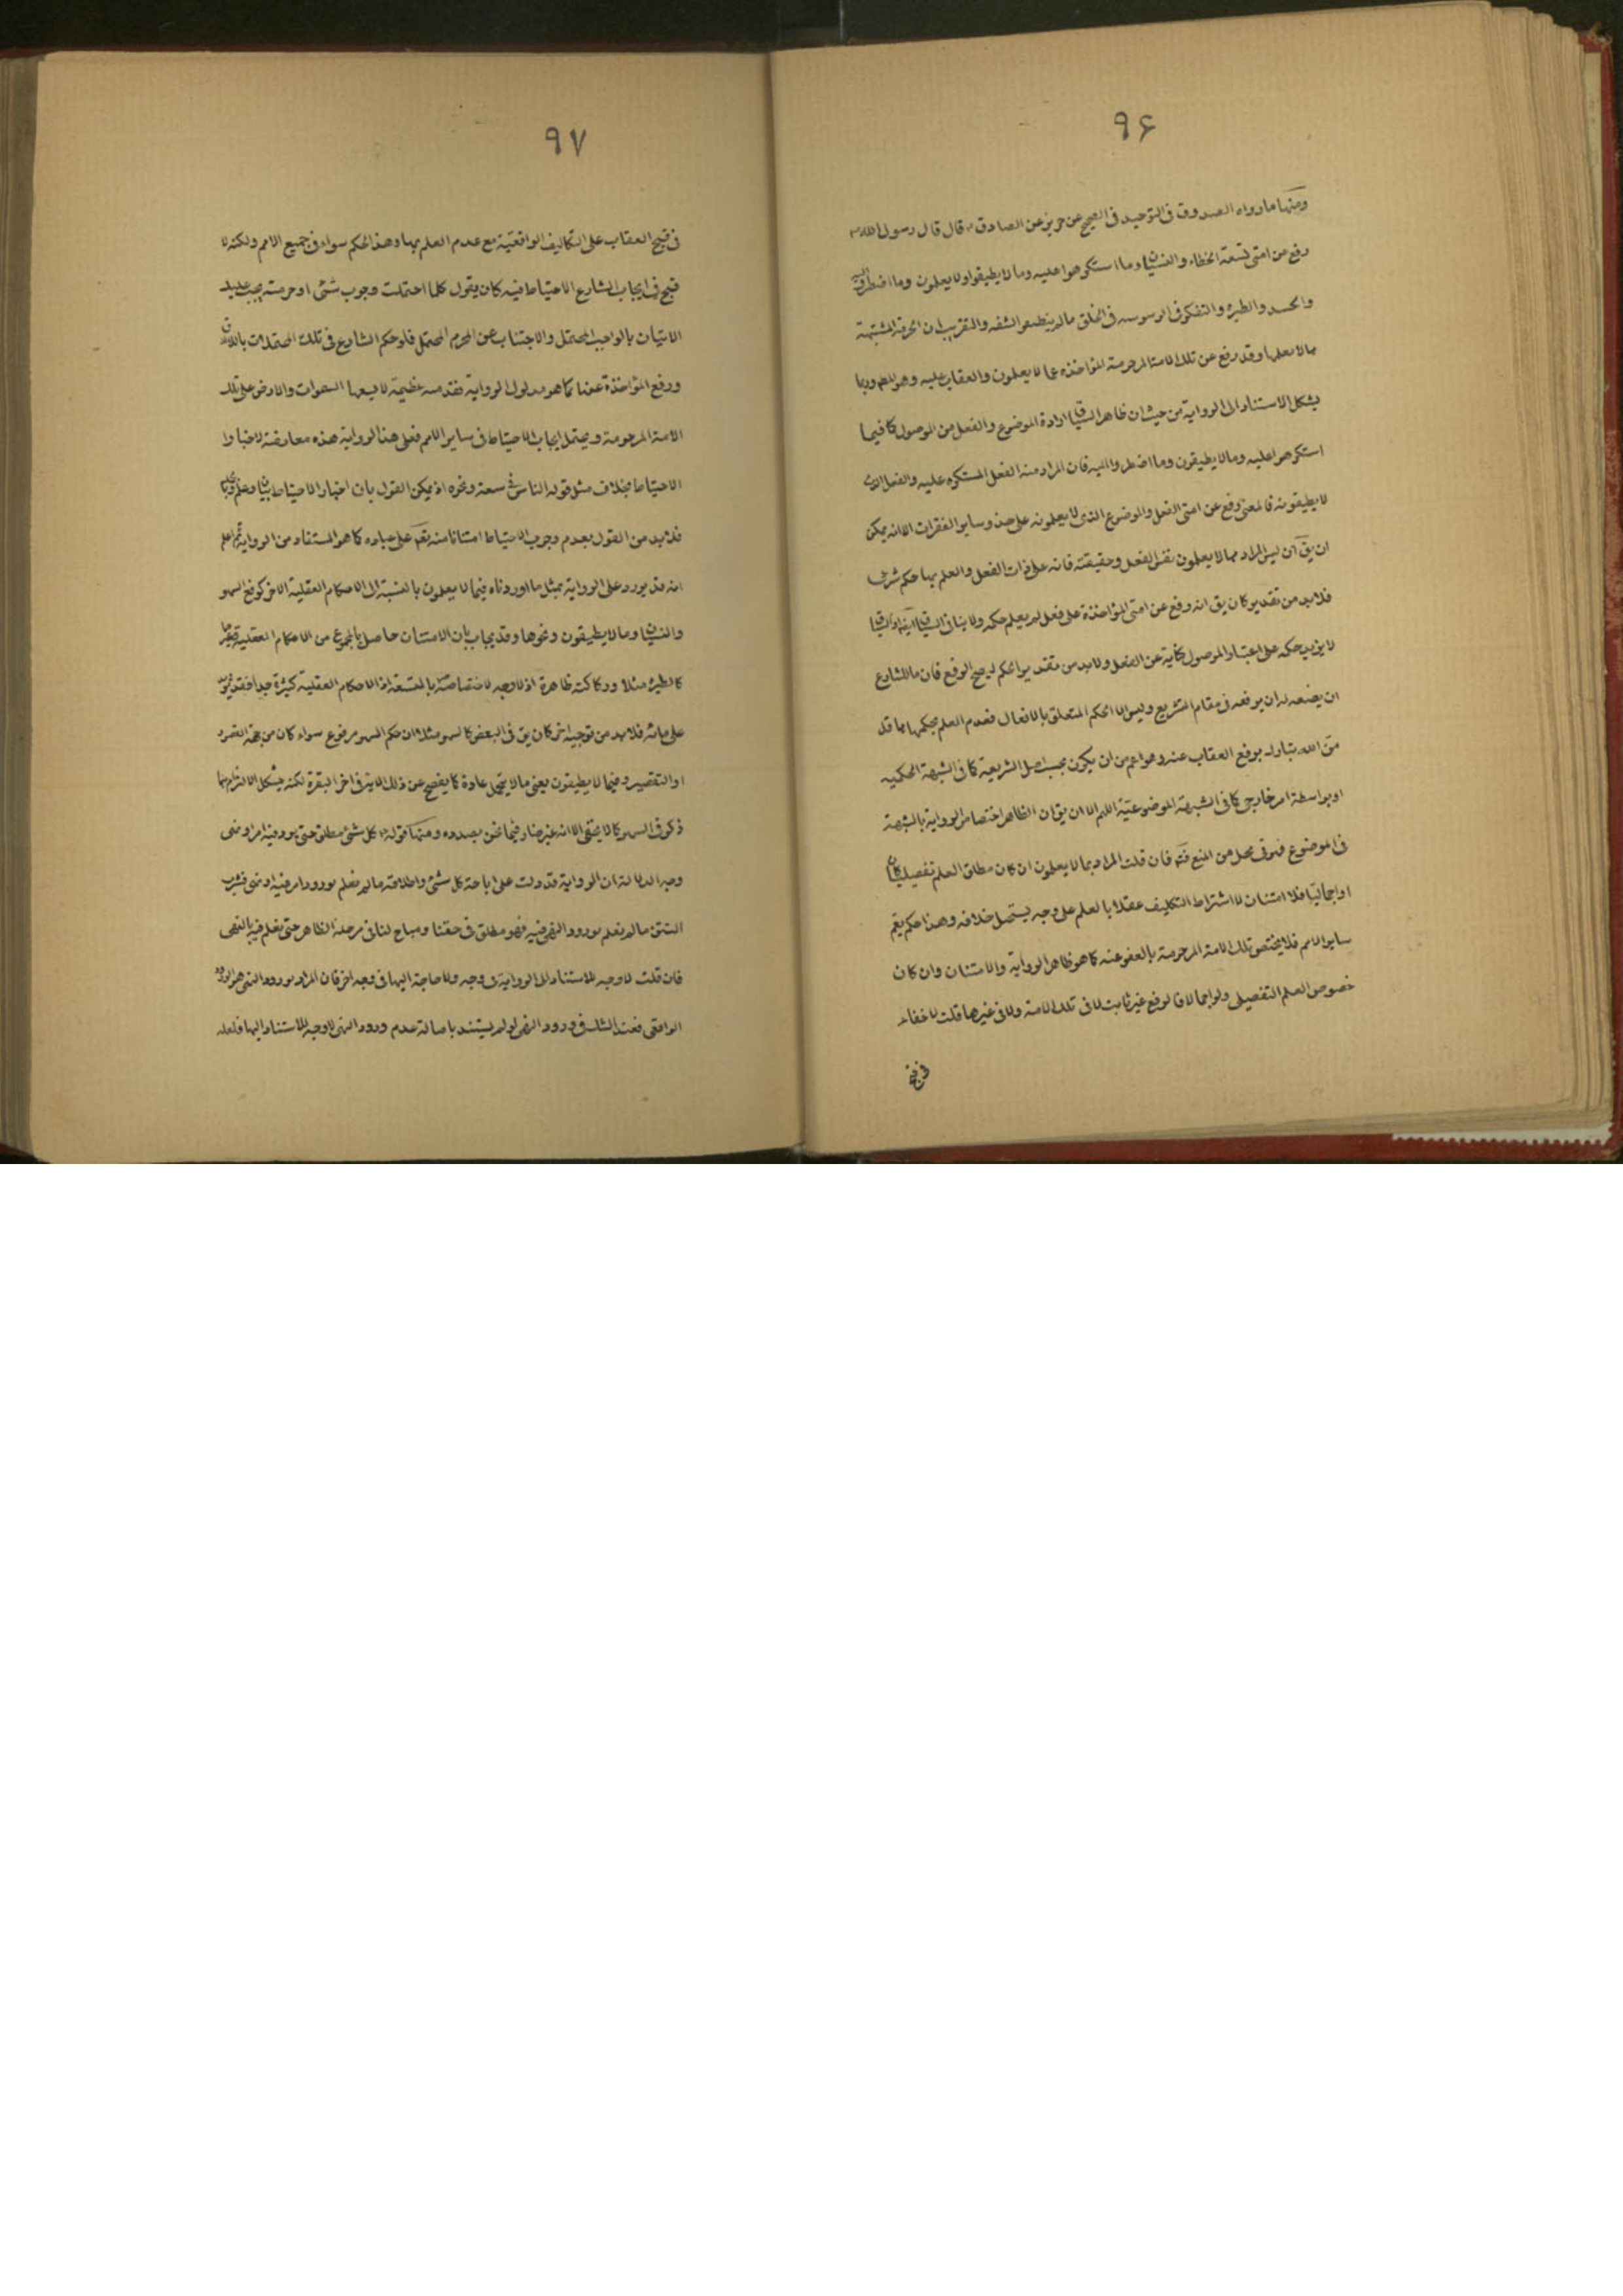 ۹۶
ومنها ما رواه الصدوق فى التوحيد فى الصحيح عن حريز عن الصادق ع قال قال رسول الله ص
رفع عن امتى تسعة الخطاء والنسيان وما استكرهوا عليه وما لا يطيقوا ولا يعلمون وما اضطروا اليه
والحسد والطيرة والتفكر فى الوسوسه فى الخلق مالم ينطقوا بشفه والتقريب ان الحرمة المشتبهة
مما لا يعلمها وقد رفع عن تلك الامة المرحومة المؤاخذه عما لا يعلمون والعقاب عليه وهو المط وربما
يشكل الاستناد الى الرواية من حيث ان ظاهر السياق ارادة الموضوع والفعل من الموصول كما فيما
استكرهوا عليه وما لا يطيقون وما اضطروا اليه فان المراد منه الفعل المستكره عليه والفعل الذى
لا يطيقونه فالمعنى رفع عن امتى الفعل والموضوع الذى لا يعلمونه على حذو ساير الفقرات الا انه يمكن
ان يق ان ليس المراد مما لا يعلمون نفس الفعل وحقيقته فانه على ذات الفعل والعلم بها حكم شرعى
فلا بد من تقدير كان يق انه رفع عن امتى المؤاخذة على فعل لم يعلم حكمه ولا ينافى السياق
لا يزيد حكمه على اعتبار الموصول كناية عن الفعل ولا بد من تقدير الحكم ليصح الرفع فان ما للشارع
ان يضعه له ان يرفعه فى مقام التشريع وليس الا الحكم المتعلق بالافعال فعدم العلم بحكمها مما قد
من الله تبارك برفع العقاب عنه وهو اعم من ان يكون بحسب اصل الشريعة كما فى الشبهة الحكميه
او بواسطة امر خارجى كما فى الشبهة الموضوعيّة اللهم الا ان يق ان الظاهر اختصاص الرواية بالشبهة
فى الموضوع فهو فى محل من المنع فتم فان قلت المراد بما لا يعلمون ان كان مطلق العلم تفصيليا كان
او اجماليا فلا امتنان لاشتراط التكليف عقلا بالعلم على وجه يستحيل خلافه وهذا حكم يعم
ساير الامم فلا يختص تلك الامة المرحومة بالعفو عنه كما هو ظاهر الرواية والامتنان وان كان
خصوص العلم التفصيلى ولو اجمالا فالرفع غير ثابت لا فى تلك الامة ولا فى غيرها قلت لا خفاء
فى قبح
۹۷
فى قبح العقاب على التكاليف الواقعيّة مع عدم العلم بها وهذا الحكم سواء فى جميع الامم ولكنه لا
قبح فى ايجاب الشارع الاحتياط فيه كان يقول كلما احتملت وجوب شئ او حرمته يجب عليك
الاتيان بالواجب المحتمل والاجتناب عن المحرم المحتمل فلو حكم الشارع فى تلك المحتملات بالبرائة
ورفع المؤاخذة عنها كما هو مدلول الرواية فقد منه عظيمة لا يسعها السموات والارض على تلك
الامة المرحومة ويحتمل ايجاب الاحتياط فى ساير الامم فعلى هذا الرواية هذه معارضة لاخبار
الاحتياط بخلاف مثل قوله الناس فى سعة ونحوه اذ يمكن القول بان اخبار الاحتياط بيان وعلم
فلا بد من القول بعدم وجوب الاحتياط امتنانا منه تعم على عباده كما هو المستفاد من الرواية ثم اعلم
انه قد يورد على الرواية بمثل ما اوردناه فيما لا يعلمون بالنسبة الى الاحكام العقلية الاخر كرفع السهو
والنسيان وما لا يطيقون ونحوها وقد يجاب بان الامتنان حاصل بالمجموع من الاحكام العقلية وغيرها
كالطيرة مثلا وركاكته ظاهرة اذ لا وجه لاختصاصه بالتسعة اذ الاحكام العقلية كثيرة جدا
على مائة فلا بد من توجيه اخر كان يق فى البعض كالسهو مثلا ان حكم السهو مرفوع سواء كان من جهة القصور
او التقصير وفيما لا يطيقون يعنى ما لا يتحمل عادة كما يفصح عن ذلك الاية فى اخر البقرة لكنه يشكل الالتزام بما
ذكر فى السهو كما لا يخفى الا انه غير ضار فيما نحن بصدده ومنها قوله ع كل شئ مطلق حتى يرد فيه امر او نهى
وجه الدلالة ان الرواية قد دلت على اباحة كل شئ واطلاقه مالم نعلم بورود امر فيه او نهى فشرب
التتن مالم نعلم بورود النهى فيه فهو مطلق فى حقنا ومباح لنا فى مرحلة الظاهر حتى نعلم فيه بالنهى
فان قلت لا وجه للاستناد الى الرواية فى وجه ولا حاجة اليها فى وجه اخر فان المراد بورود النهى هو الورود
الواقعى فعند الشك فى ورود النهى لو لم يستند باصالة عدم ورود النهى لا وجه للاستناد اليها فلعله